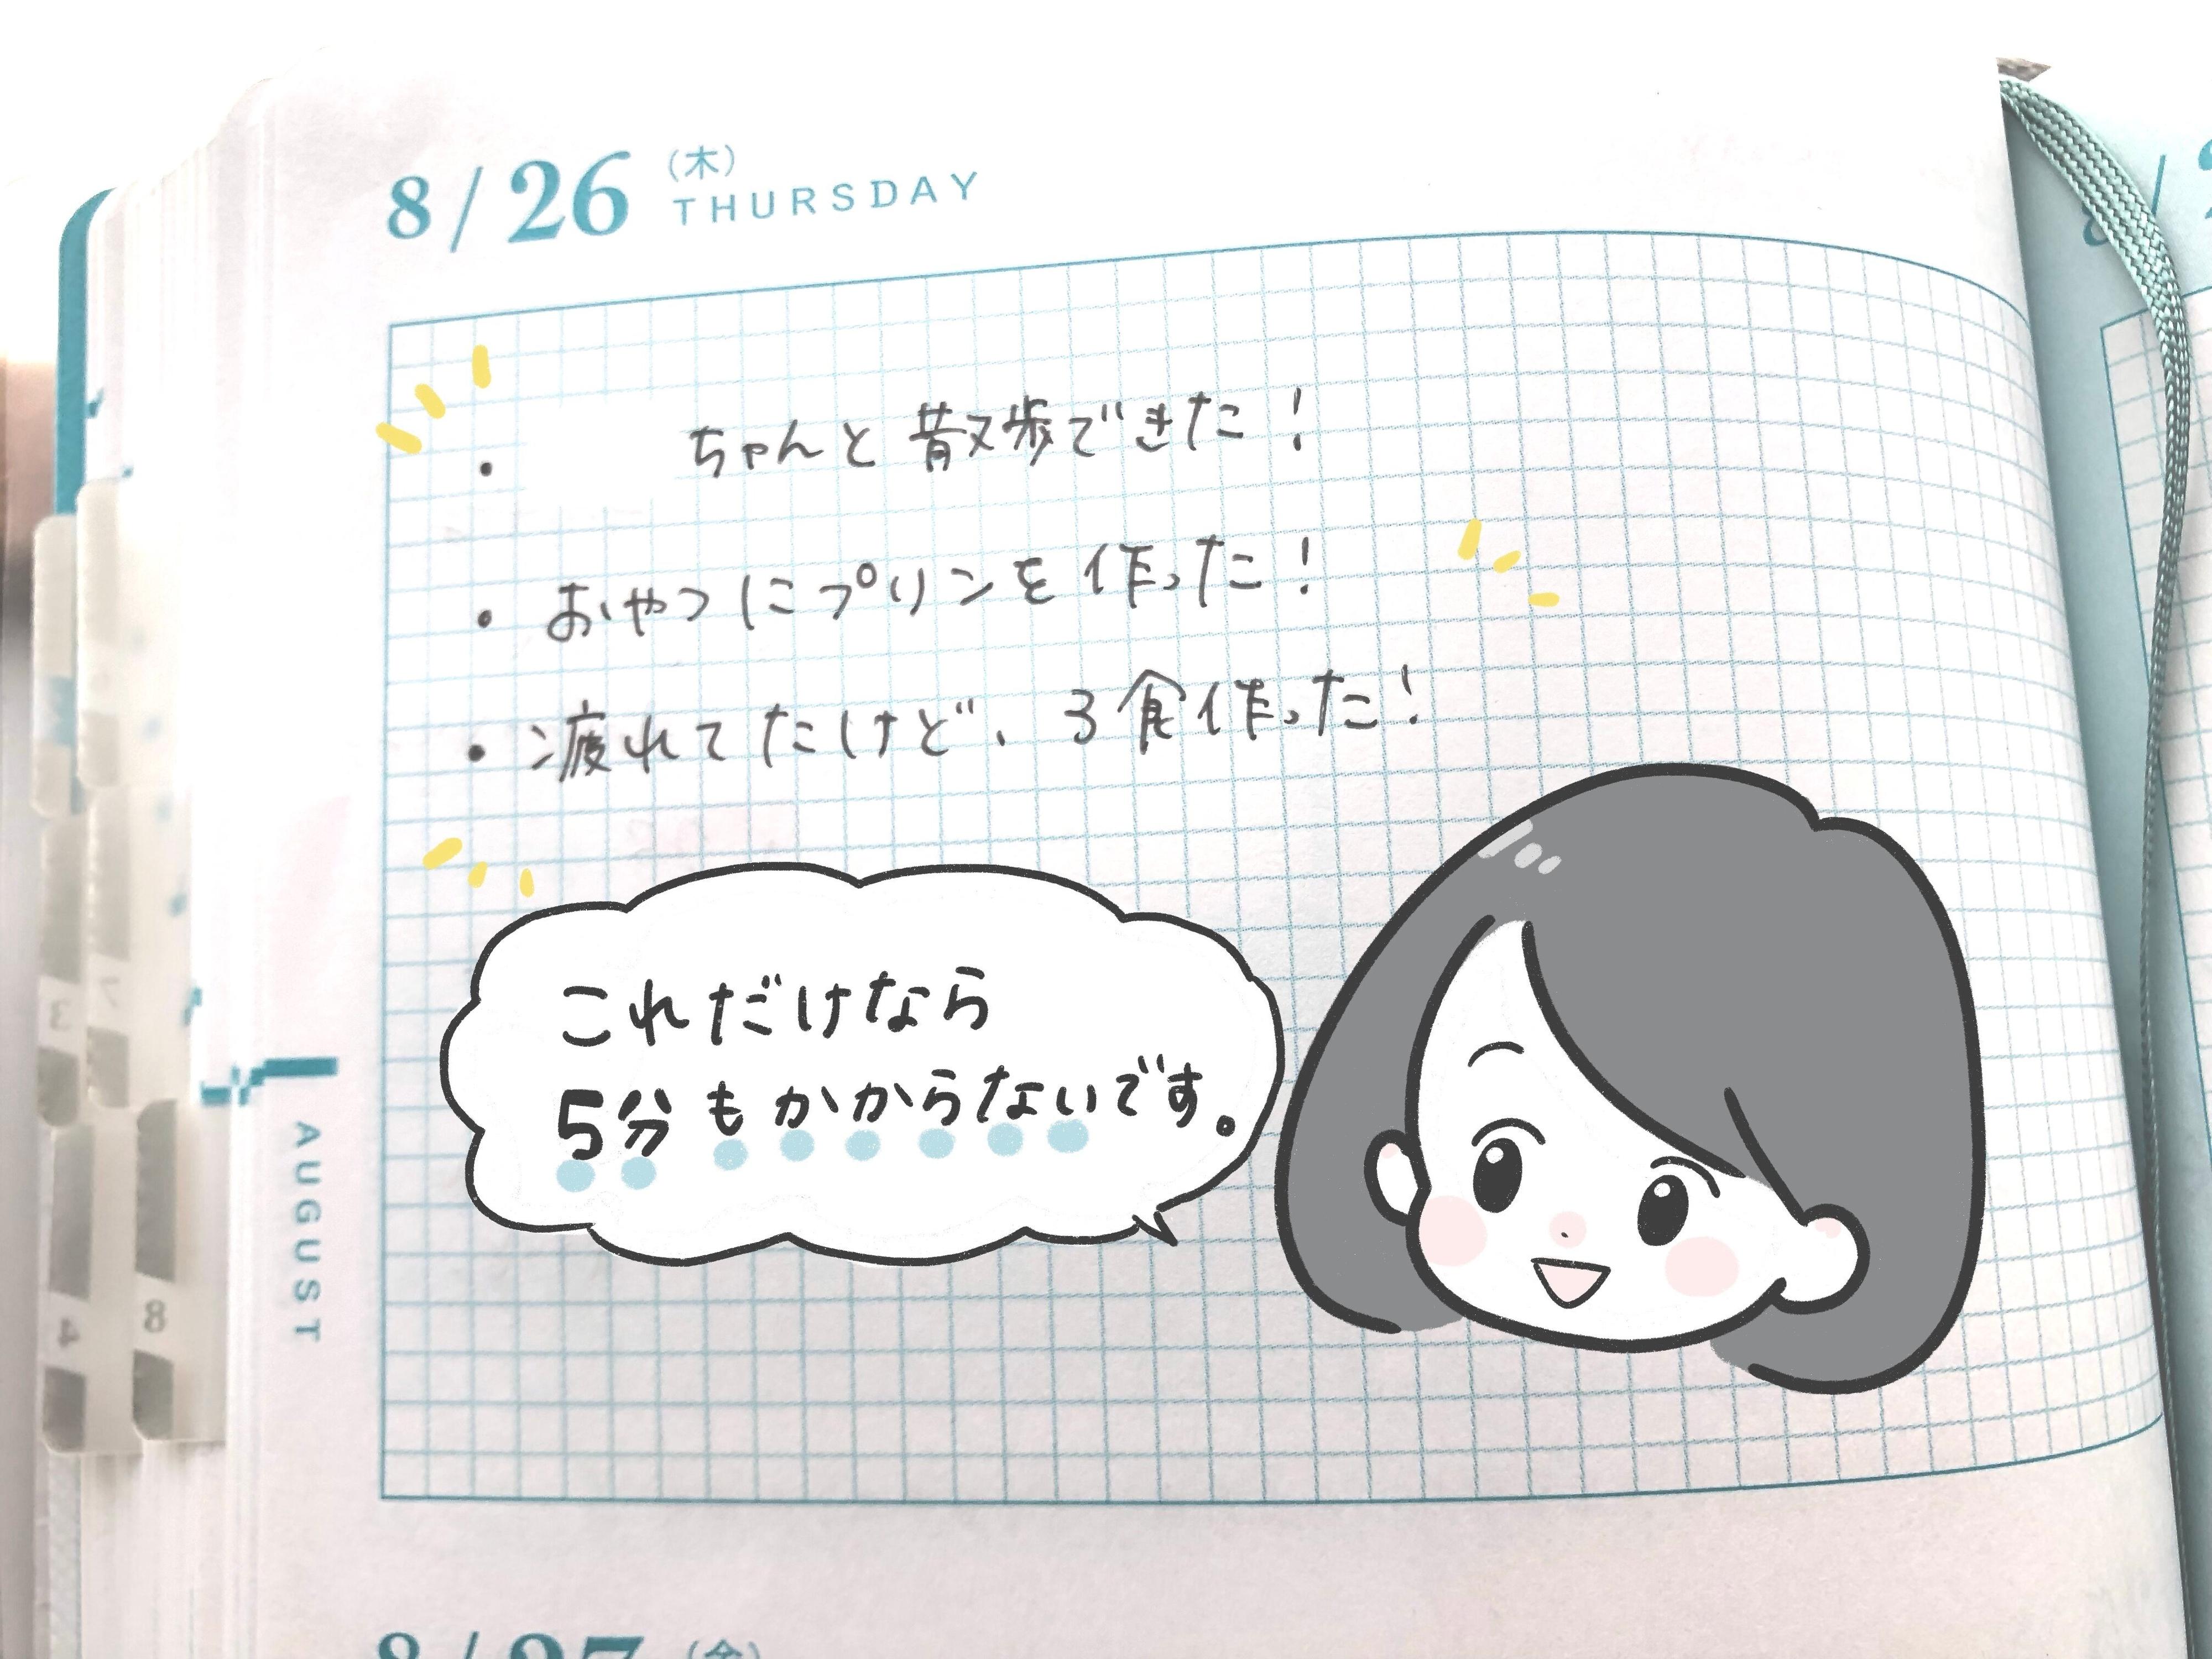 8/26 (木)
THURSDAY
・ ちゃんと散歩できた！
・おやつにプリンを作った！
・疲れてたけど、3食作った！
これだけなら
5分もかからないです。
AUGUST
3
7
4
8
8/27 (金)